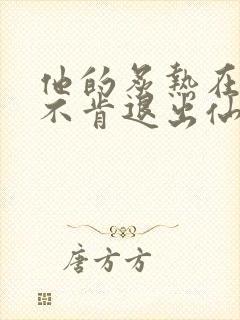 他的炙热在
不肯退出仙
唐方方